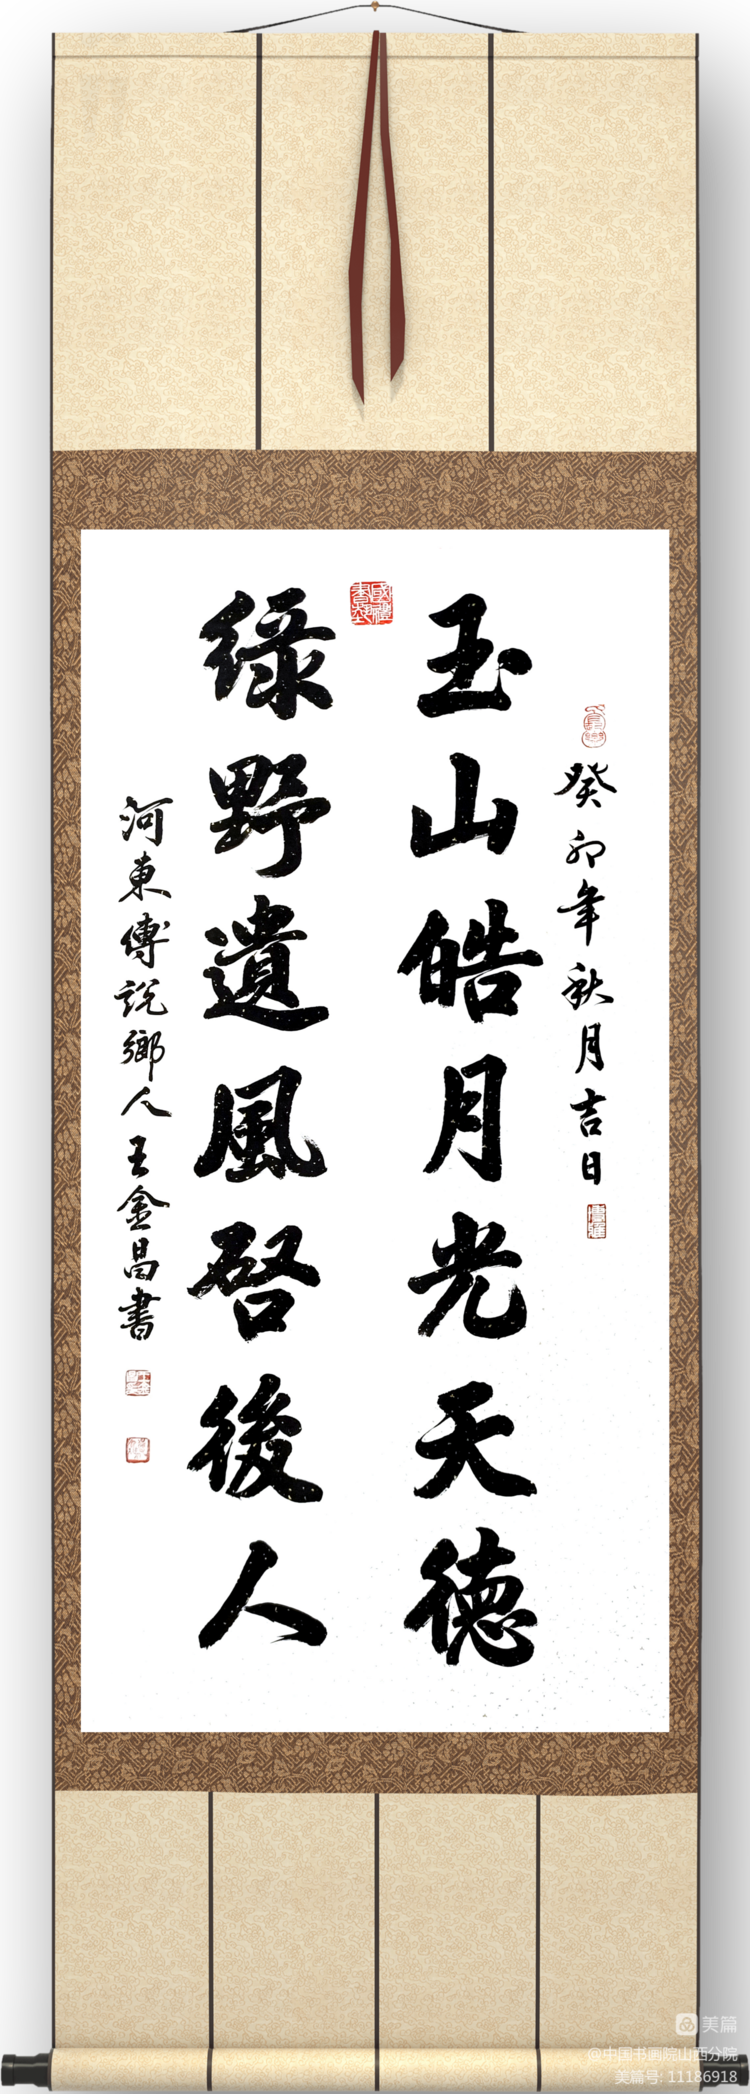 癸卯年秋月吉日
玉山皓月光天德
綠野遺風啓後人
河東傅說鄉人王金昌書
美篇
@中国书画院山西分院
美篇号: 11186918